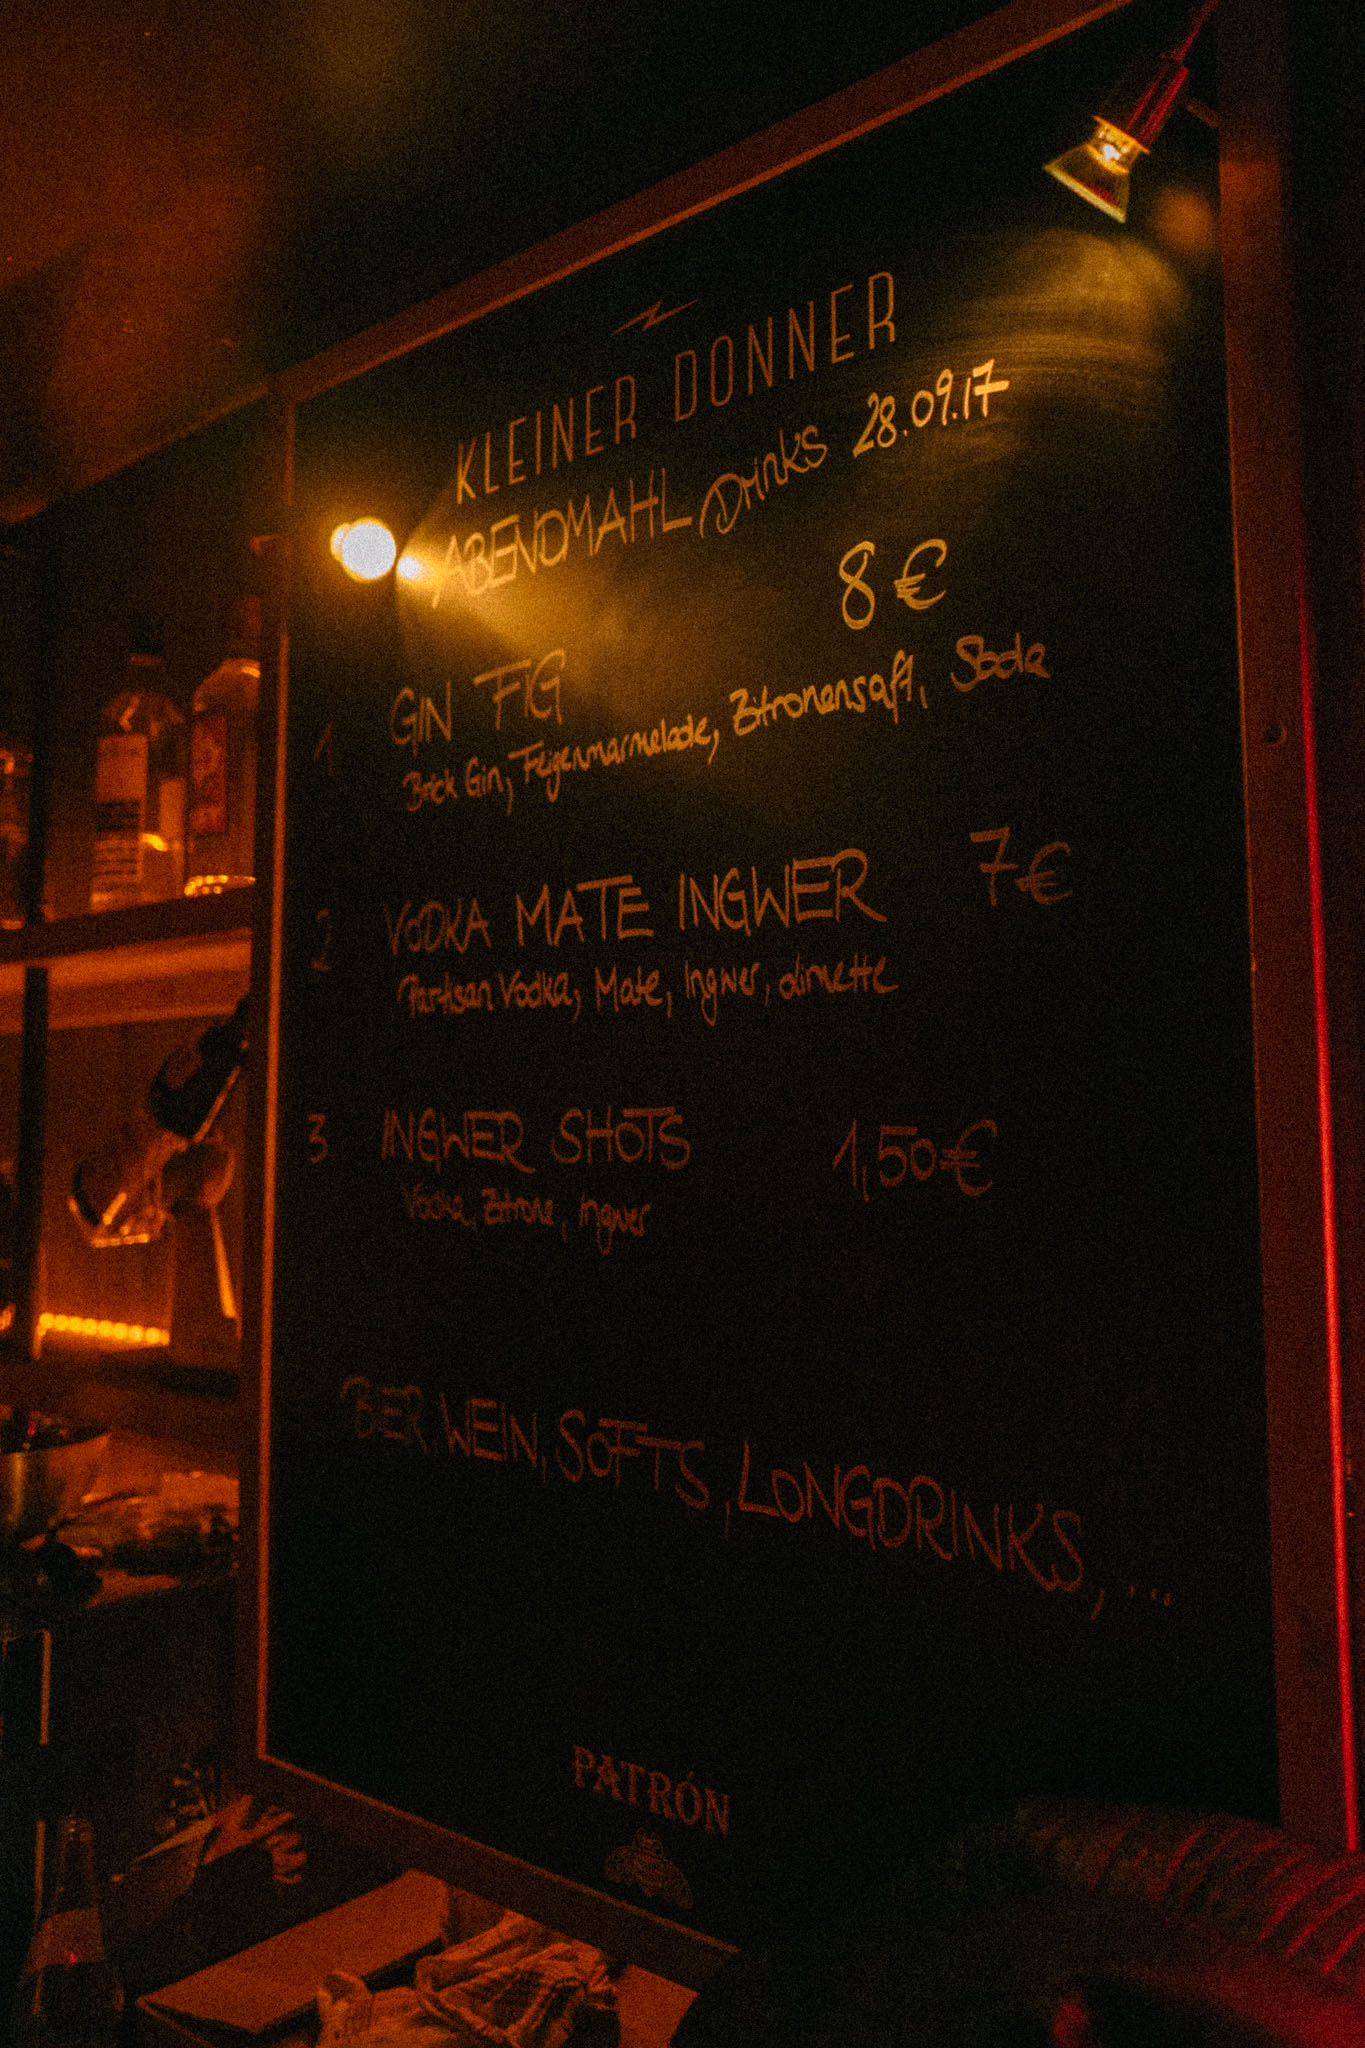 KLEINER DONNER
ABENDMAHL Drinks 28.09.17
8 €
1 GIN FIG
Brick Gin, Feigenmarmelade, Zitronensaft, Soda
2 VODKA MATE INGWER 7€
Partisan Vodka, Mate, Ingwer, Limette
3 INGWER SHOTS 1,50€
Vodka, Zitrone, Ingwer
BIER, WEIN, SOFTS, LONGDRINKS, ...
PATRÓN